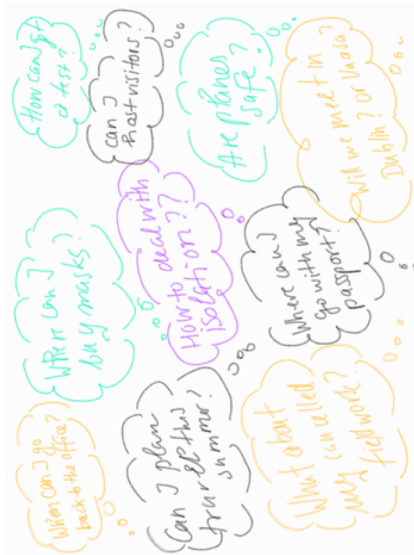 When can I go
back to the office?
Where can I
buy masks?
How can I get
a test?
Can I plan
travel this
summer?
How to deal with
isolation??
can I
host visitors?
What about
my cancelled
fieldwork?
Where can I
go with my
passport?
Are planes
safe?
Will we meet in
Dublin? or Vaasa?